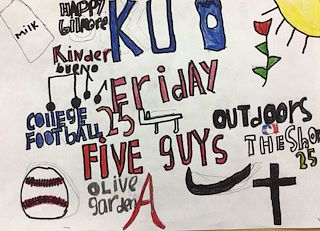 milk
HAPPY
Gilmore
KU
Kinder
bueno
FRiDAY
COllEGE
FOOTBALL
25
OUTDOORS
THE Show
25
FIVE GUYS
OLIVE
garden
A